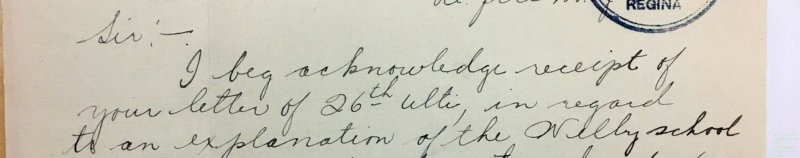 REGINA
Sir:-
I beg acknowledge receipt of
your letter of 26th ulti, in regard
to an explanation of the Welby school